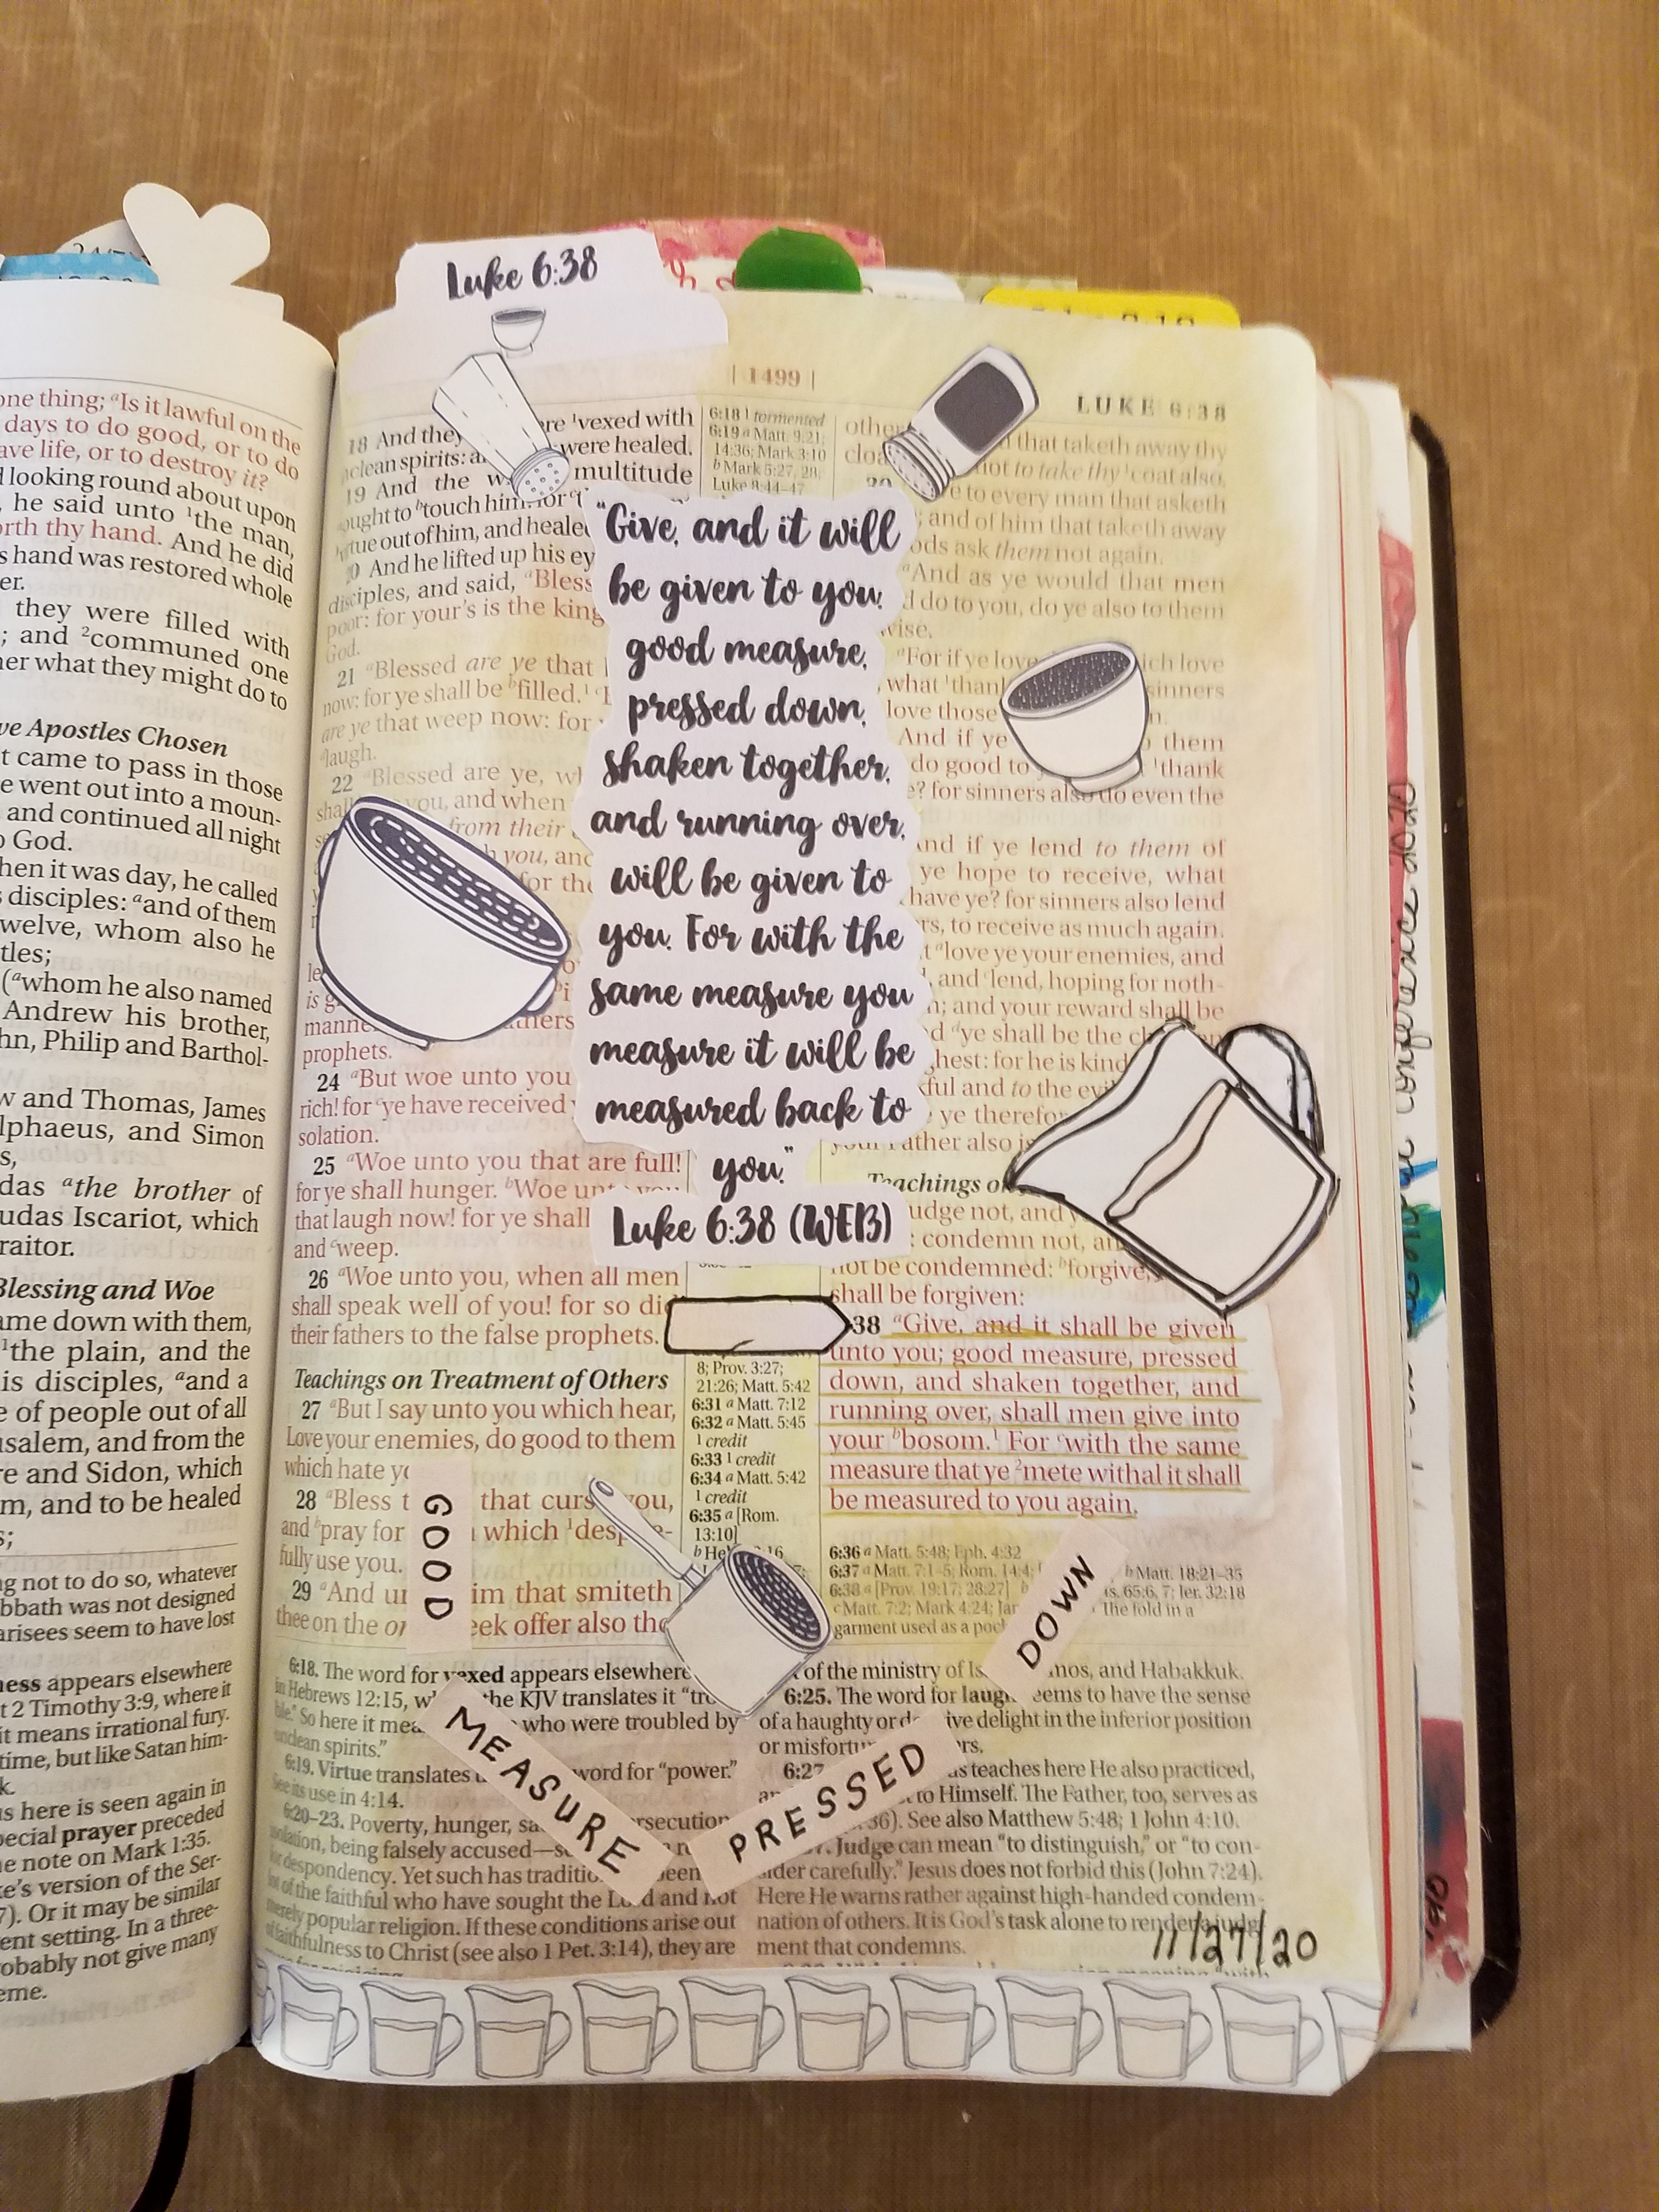 Luke 6:38
one thing; ᵃIs it lawful on the
days to do good, or to do
ave life, or to destroy it?
looking round about upon
he said unto ¹the man,
orth thy hand. And he did
s hand was restored whole
er.
they were filled with
; and ²communed one
her what they might do to
ve Apostles Chosen
t came to pass in those
e went out into a moun-
and continued all night
God.
hen it was day, he called
disciples: ᵃand of them
welve, whom also he
tles;
(ᵃwhom he also named
Andrew his brother,
hn, Philip and Barthol-
w and Thomas, James
lphaeus, and Simon
das ᵃthe brother of
udas Iscariot, which
raitor.
Blessing and Woe
ame down with them,
¹the plain, and the
is disciples, ᵃand a
e of people out of all
usalem, and from the
re and Sidon, which
m, and to be healed
g not to do so, whatever
bbath was not designed
arisees seem to have lost
ness appears elsewhere
t 2 Timothy 3:9, where it
it means irrational fury.
time, but like Satan him-
k.
s here is seen again in
pecial prayer preceded
e note on Mark 1:35.
ke's version of the Ser-
7). Or it may be similar
ent setting. In a three-
obably not give many
eme.
1499
LUKE 6:38
18 And they ere ¹vexed with
nclean spirits: a were healed.
19 And the w multitude
ought to ᵇtouch him: for
rtue out of him, and heale
And he lifted up his ey
disciples, and said, "Bless
poor: for your's is the king
God.
21 ᵃBlessed are ye that
now: for ye shall be ᵇfilled.¹
are ye that weep now: for
laugh.
22 ᵃBlessed are ye,
shall you, and when
from their
you, and
for the
is g
manne thers
prophets.
24 ᵃBut woe unto you
rich! for ᶜye have received
solation.
25 ᵃWoe unto you that are full!
for ye shall hunger. ᵇWoe unto you
that laugh now! for ye shall
and ᶜweep.
26 ᵃWoe unto you, when all men
shall speak well of you! for so did
their fathers to the false prophets.
Teachings on Treatment of Others
27 ᵃBut I say unto you which hear,
Love your enemies, do good to them
which hate
28 ᵃBless t that curse you,
and ᵇpray for which ¹despite-
fully use you.
29 ᵃAnd un im that smiteth
thee on the o eek offer also the
6:18 ¹ tormented
6:19 a Matt. 9:21;
14:36; Mark 3:10
b Mark 5:27, 28;
Luke 8:44–47
"Give, and it will
be given to you:
good measure,
pressed down,
shaken together,
and running over,
will be given to
you. For with the
same measure you
measure it will be
measured back to
you."
Luke 6:38 (WEB)
8; Prov. 3:27;
21:26; Matt. 5:42
6:31 a Matt. 7:12
6:32 a Matt. 5:45
1 credit
6:33 1 credit
6:34 a Matt. 5:42
1 credit
6:35 a [Rom.
13:10]
other
cloa that taketh away thy
not to take thy ¹coat also.
30 e to every man that asketh
; and of him that taketh away
ods ask them not again.
ᵃAnd as ye would that men
d do to you, do ye also to them
wise.
ᵃFor if ye love ich love
what ¹thank sinners
love those
And if ye them
do good to ¹thank
e? for sinners also do even the
And if ye lend to them of
ye hope to receive, what
have ye? for sinners also lend
rs, to receive as much again.
t ᵃlove ye your enemies, and
and ᶜlend, hoping for noth-
n; and your reward shall be
d ᵈye shall be the
hest: for he is kind
kful and to the
ye therefor
your Father also is
Teachings on
udge not, and
: condemn not, an
not be condemned: ᵇforgive,
shall be forgiven:
38 ᵃGive, and it shall be given
unto you; good measure, pressed
down, and shaken together, and
running over, shall men give into
your ᵇbosom.¹ For ᶜwith the same
measure that ye ²mete withal it shall
be measured to you again.
6:36 a Matt. 5:48; Eph. 4:32
6:37 a Matt. 7:1–5; Rom. 14:4; b Matt. 18:21–35
6:38 a [Prov. 19:17; 28:27] Is. 65:6, 7; Jer. 32:18
c Matt. 7:2; Mark 4:24; The fold in a
garment used as a
GOOD
MEASURE
PRESSED
DOWN
6:18. The word for vexed appears elsewhere
in Hebrews 12:15, the KJV translates it "trou
ble." So here it mea who were troubled by
unclean spirits."
6:19. Virtue translates word for "power."
See its use in 4:14.
6:20–23. Poverty, hunger, rsecution
isolation, being falsely accused—
or despondency. Yet such has traditio been
lot of the faithful who have sought the Lord and not
merely popular religion. If these conditions arise out
of faithfulness to Christ (see also 1 Pet. 3:14), they are
of the ministry of mos, and Habakkuk.
6:25. The word for laugh seems to have the sense
of a haughty or ive delight in the inferior position
or misfortu rs.
6:27 us teaches here He also practiced,
to Himself. The Father, too, serves as
36). See also Matthew 5:48; 1 John 4:10.
Judge can mean "to distinguish," or "to con-
sider carefully." Jesus does not forbid this (John 7:24).
Here He warns rather against high-handed condem-
nation of others. It is God's task alone to render a judg-
ment that condemns.
11/27/20